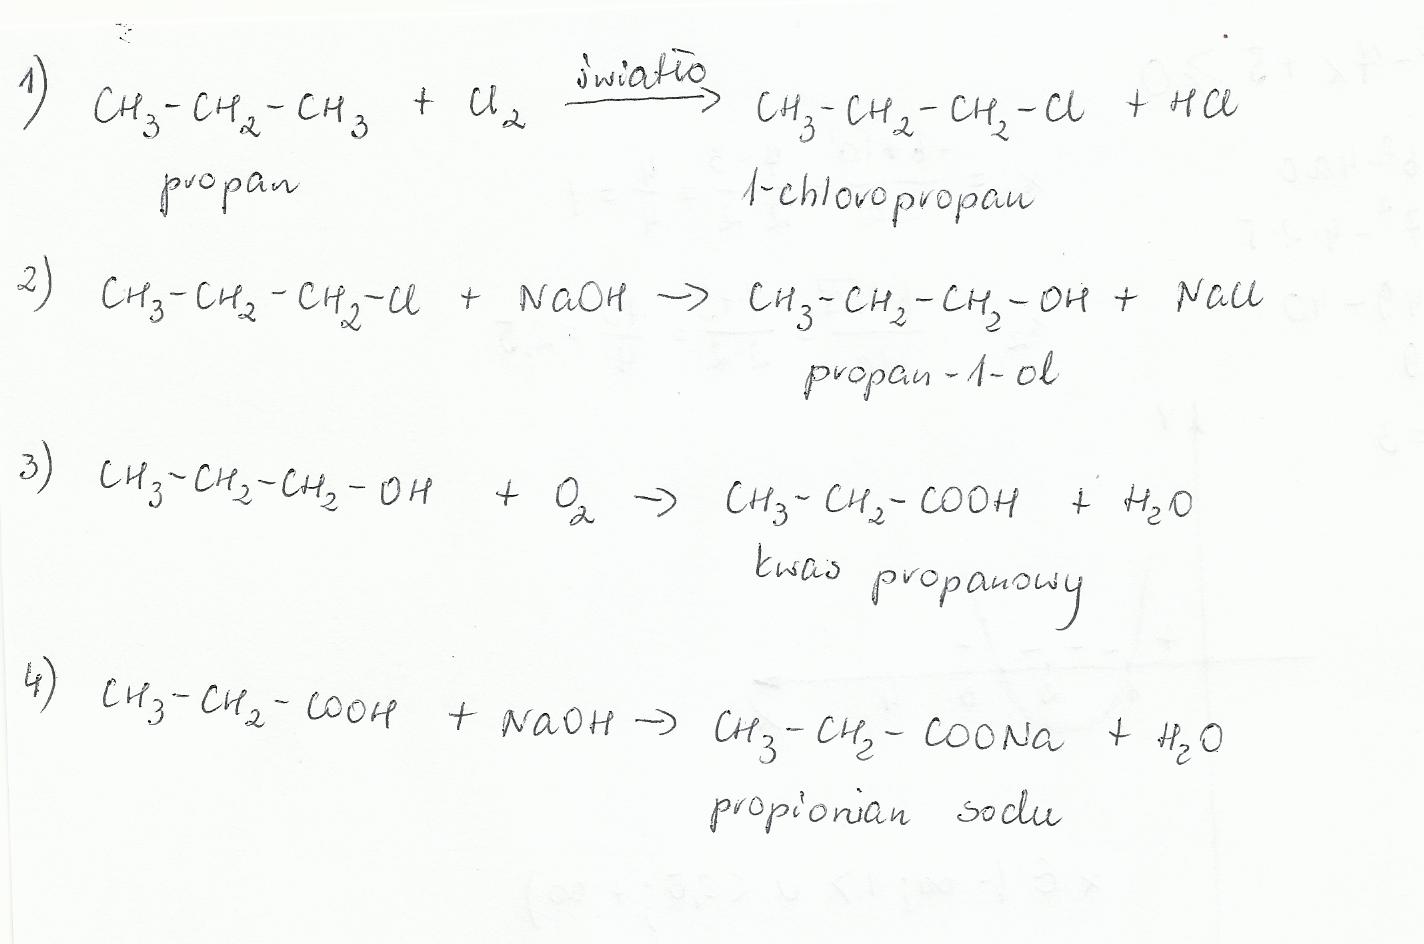 1) CH₃-CH₂-CH₃ + Cl₂ światło → CH₃-CH₂-CH₂-Cl + HCl
propan 1-chloropropan
2) CH₃-CH₂-CH₂-Cl + NaOH → CH₃-CH₂-CH₂-OH + NaCl
propan-1-ol
3) CH₃-CH₂-CH₂-OH + O₂ → CH₃-CH₂-COOH + H₂O
kwas propanowy
4) CH₃-CH₂-COOH + NaOH → CH₃-CH₂-COONa + H₂O
propionian sodu